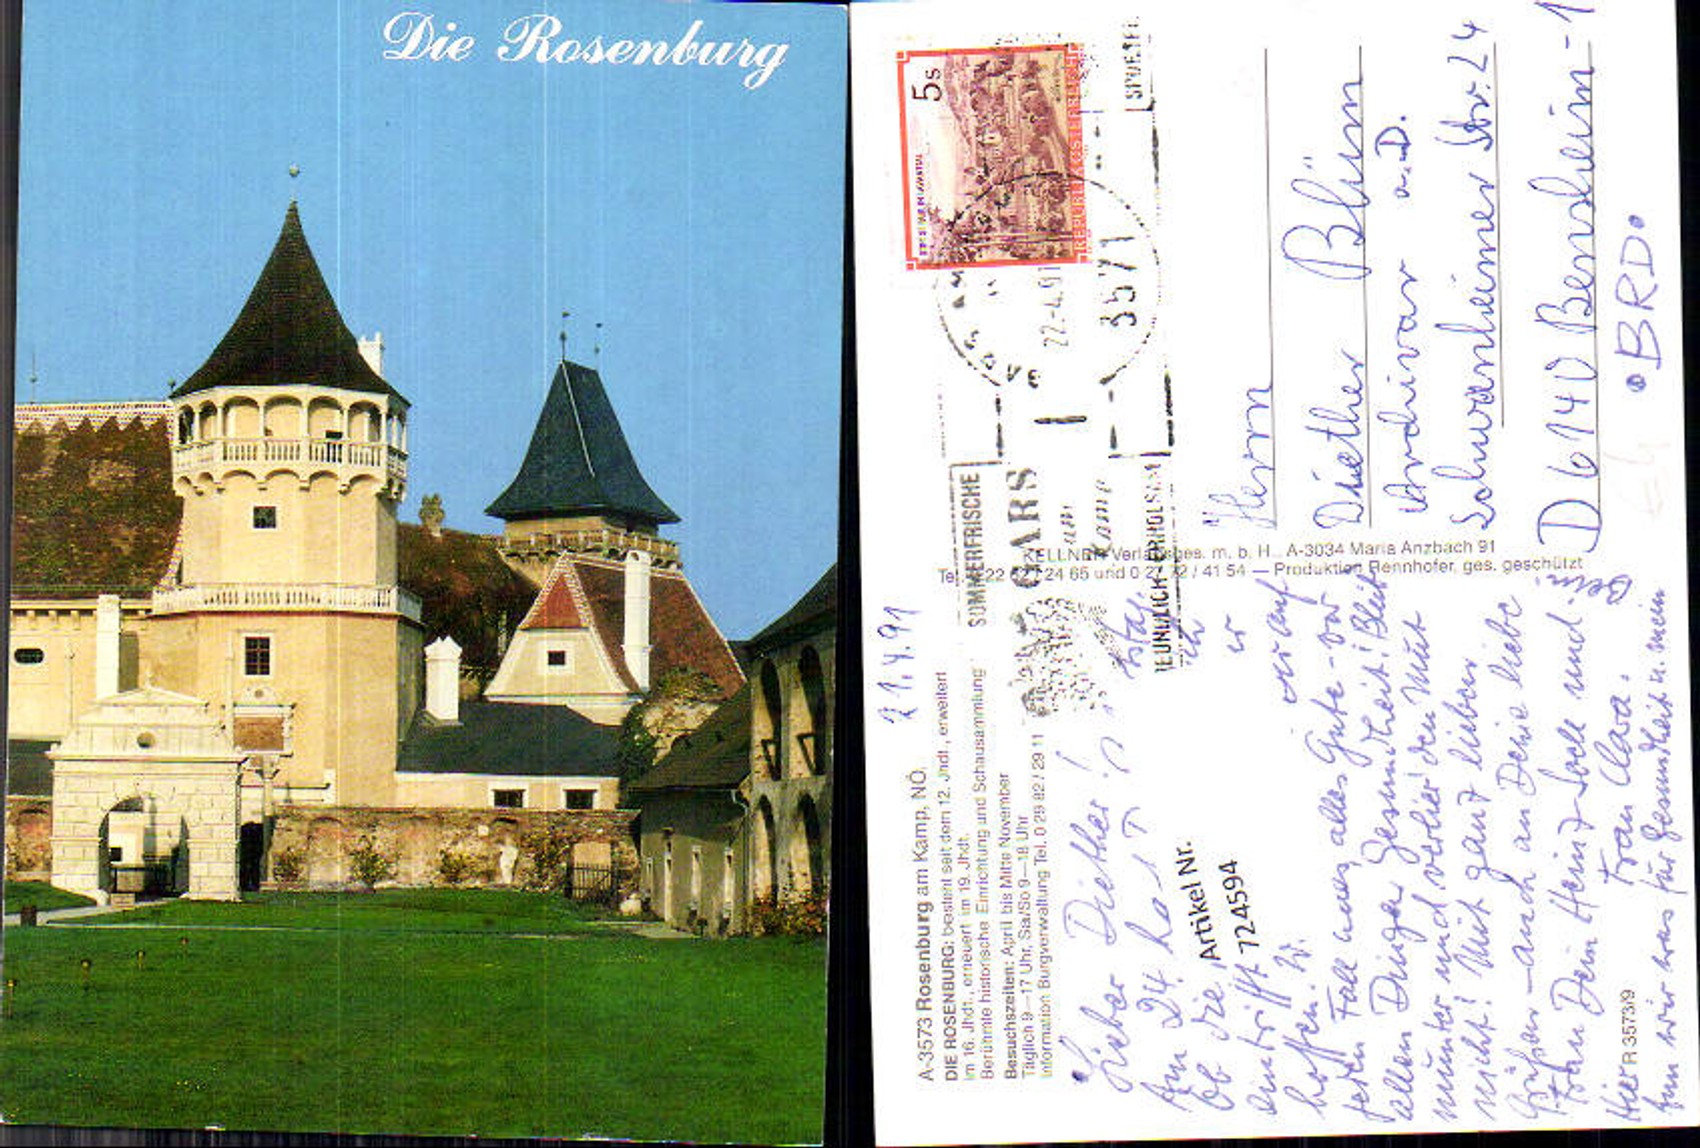 Die Rosenburg
5s
REPUBLIK ÖSTERREICH
22.-4.91
3571
SOMMERFRISCHE
GARS
am
Kamp
A-3573 Rosenburg am Kamp, NÖ,
DIE ROSENBURG: besteht seit dem 12. Jhdt., erweitert
im 16. Jhdt., erneuert im 19. Jhdt.
Berühmte historische Einrichtung und Schausammlung
Besuchszeiten: April bis Mitte November
Täglich 9—17 Uhr, Sa/So 9—18 Uhr
Information Burgverwaltung Tel. 0 29 82 / 29 11
21.4.91
Lieber Diether!
Am 24. ha
ob die
eintrifft
hoffen. W.
jeden Fall alles Gute - vor
allen Dingen Gesundheit! Bleib
munter und verlier den Mut
nicht! Mit ganz lieben
Grüßen - auch an Deine liebe
Frau Dein Heinz Sock und
Frau Clara.
Hier
tun wir was für Gesundheit u. mein
Artikel Nr.
724594
KELLNER Verlagsges. m. b. H., A-3034 Maria Anzbach 91
Produktion Rennhofer, ges. geschützt
R 3573/9
Herrn
Diether Blüm
Archivar a.D.
Schwanheimer Str. 24
D 6140 Bensheim-1
BRD